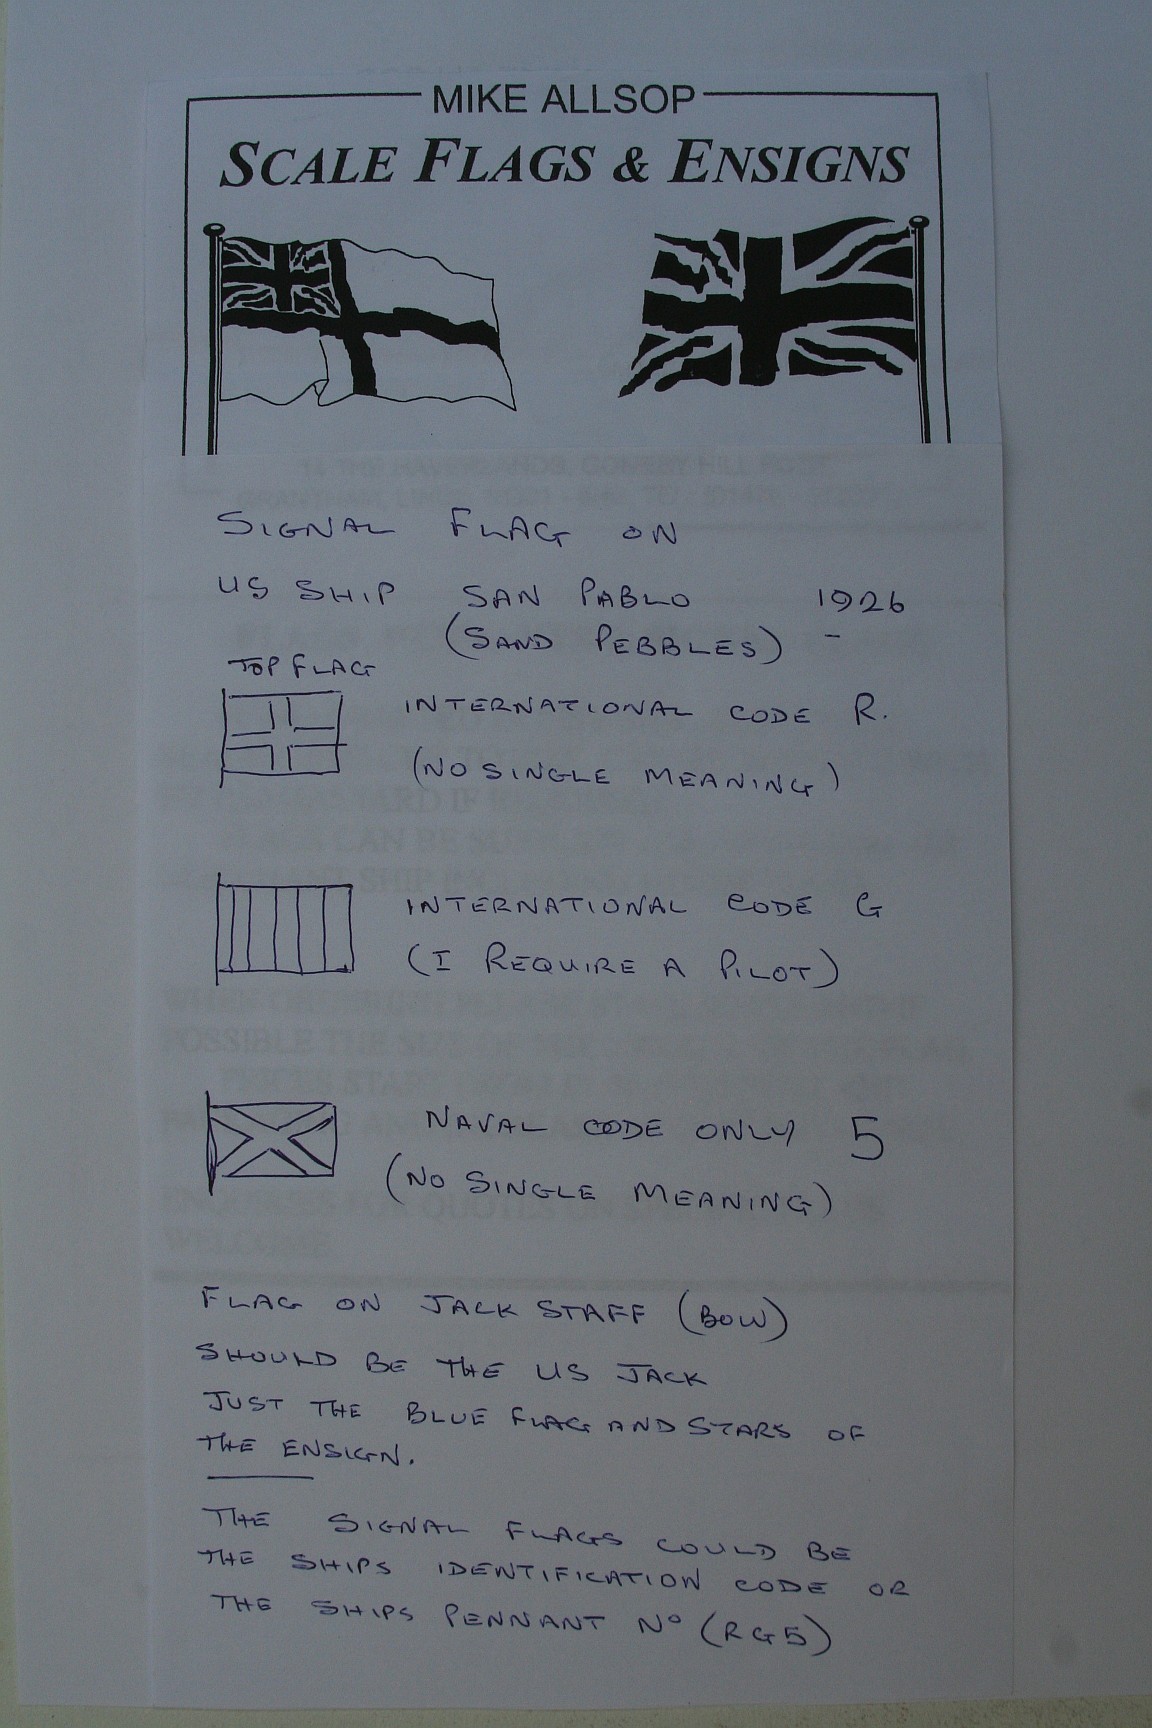 MIKE ALLSOP
SCALE FLAGS & ENSIGNS
SIGNAL FLAG ON
US SHIP SAN PABLO 1926
(SAND PEBBLES) -
TOP FLAG
INTERNATIONAL CODE R.
(NO SINGLE MEANING)
INTERNATIONAL CODE G
(I REQUIRE A PILOT)
NAVAL CODE ONLY 5
(NO SINGLE MEANING)
FLAG ON JACK STAFF (BOW)
SHOULD BE THE US JACK
JUST THE BLUE FLAG AND STARS OF
THE ENSIGN.
THE SIGNAL FLAGS COULD BE
THE SHIPS IDENTIFICATION CODE OR
THE SHIPS PENNANT Nº (RG5)